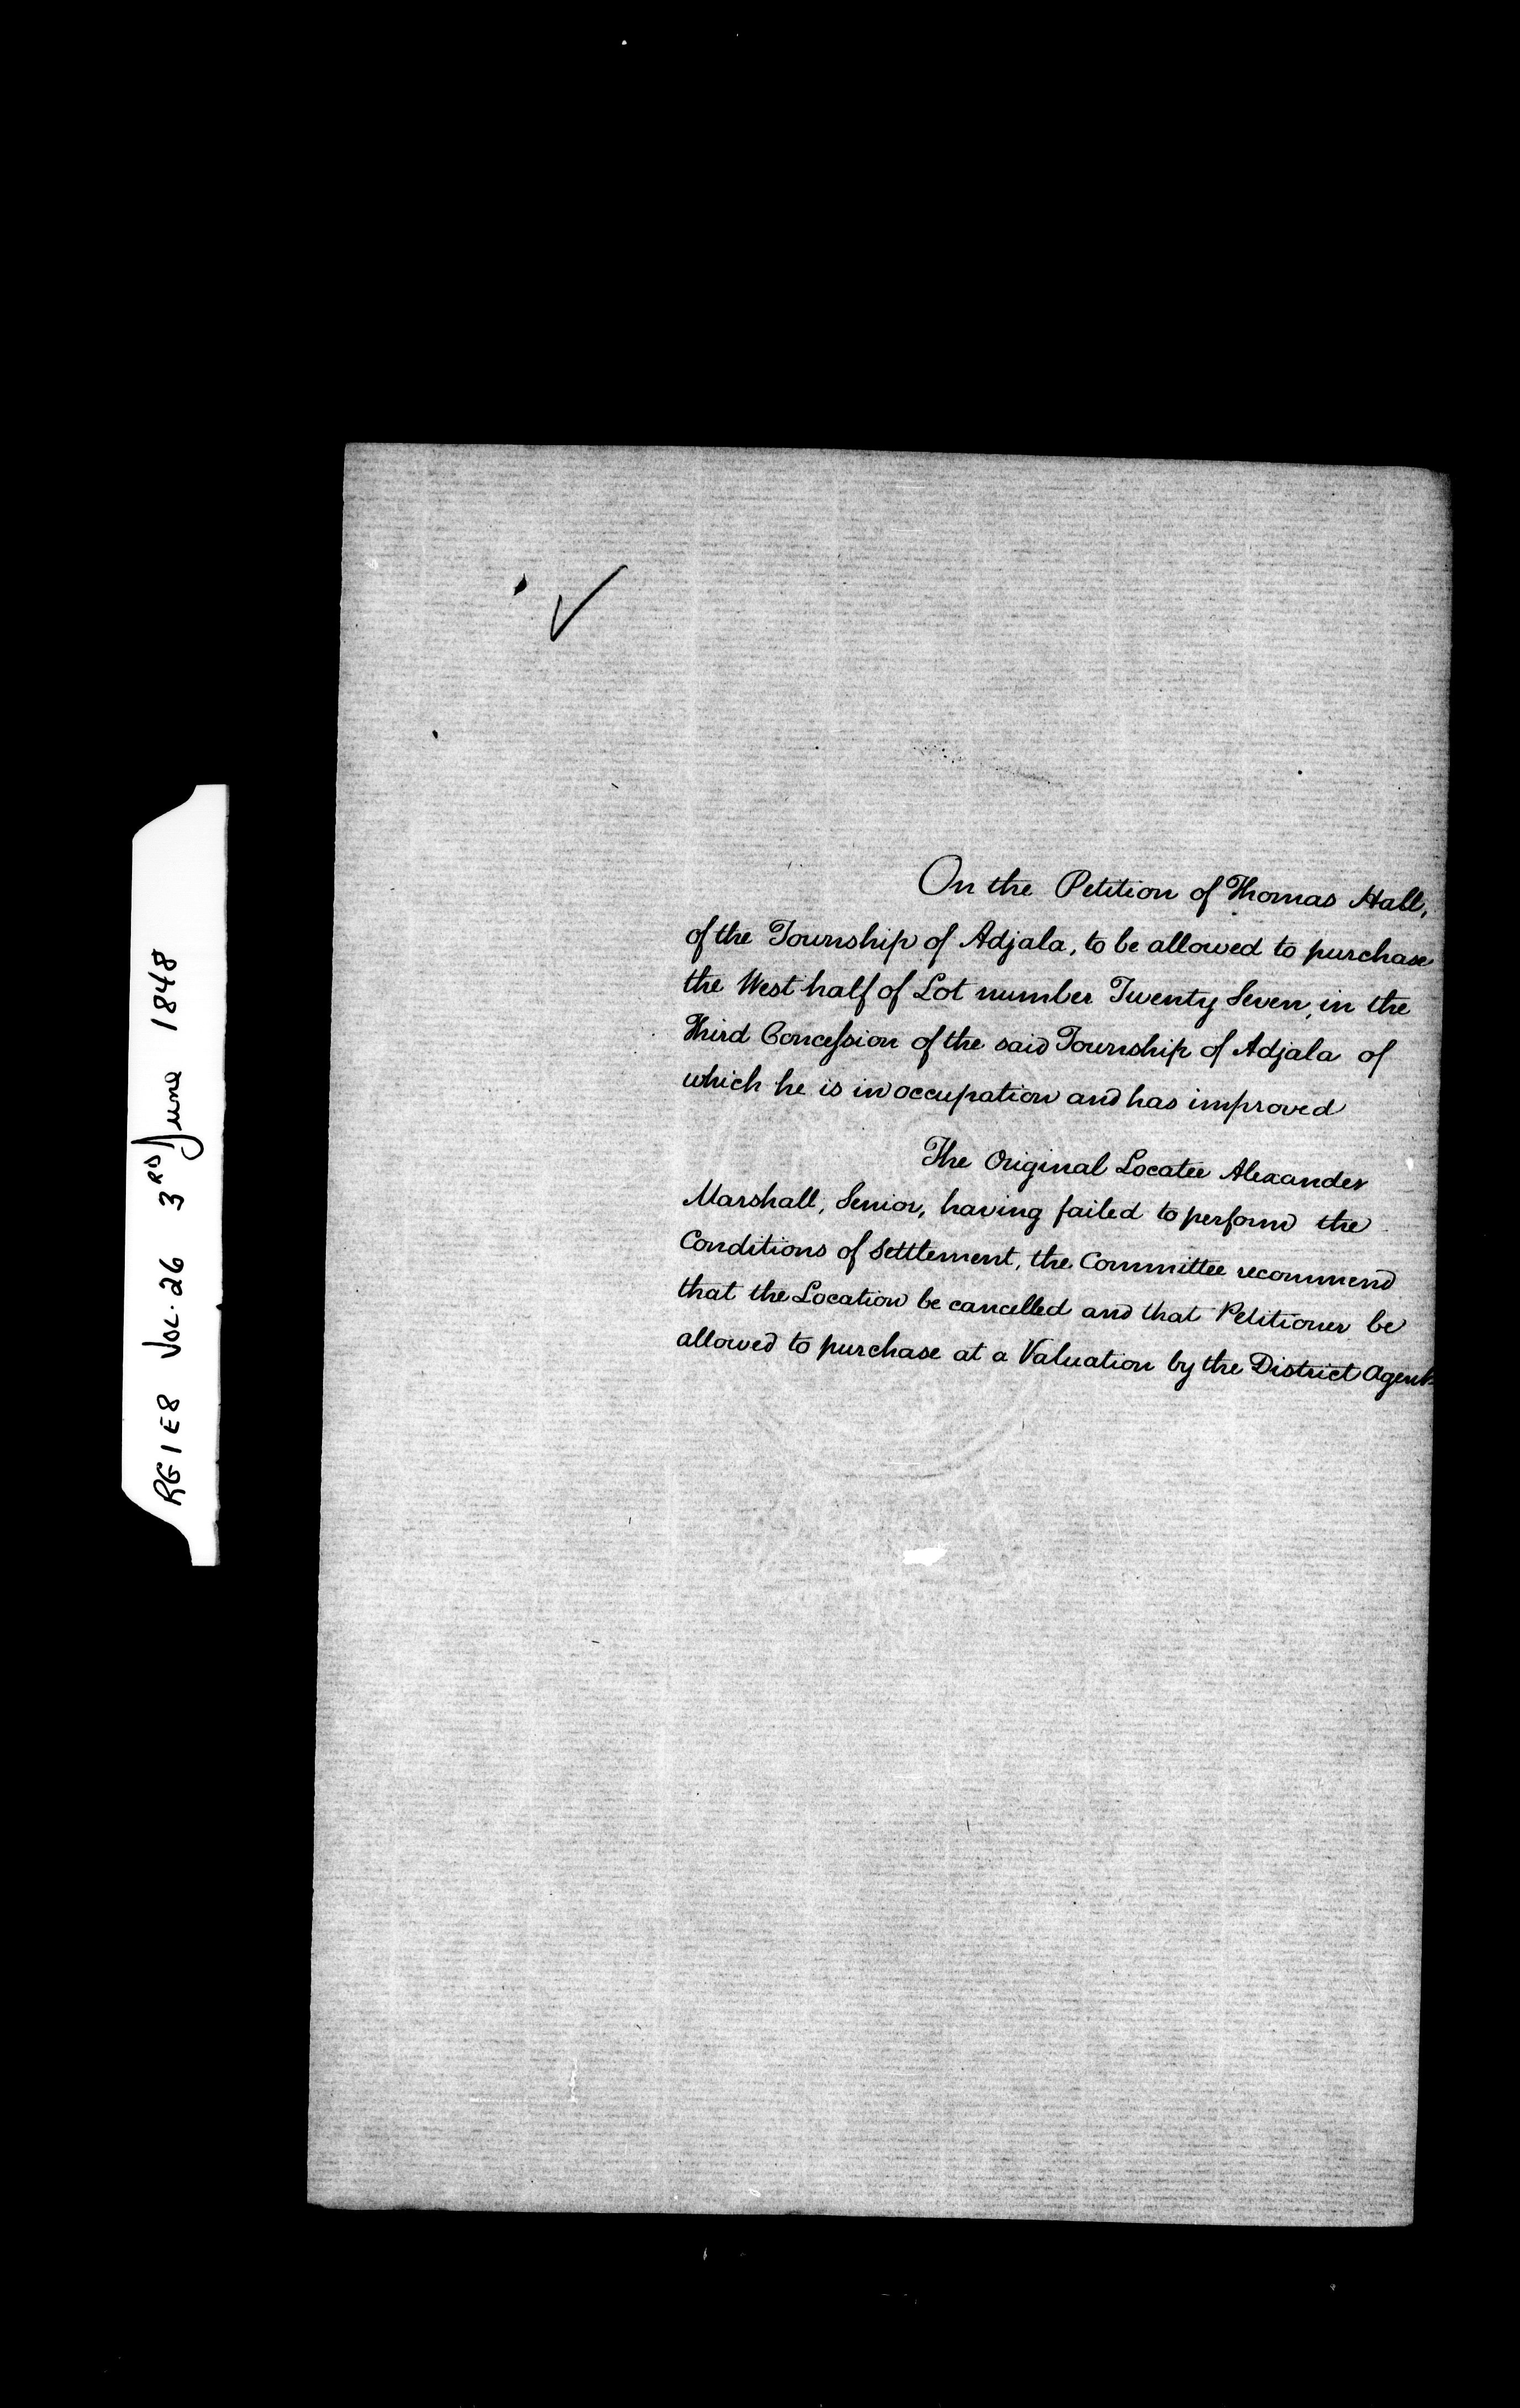 RG1E8 VOL. 26 3RD June 1848
On the Petition of Thomas Hall,
of the Township of Adjala, to be allowed to purchase
the West half of Lot number Twenty Seven, in the
Third Concession of the said Township of Adjala of
which he is in occupation and has improved
The Original Locatee Alexander
Marshall, Senior, having failed to perform the
Conditions of Settlement, the Committee recommend
that the Location be cancelled and that Petitioner be
allowed to purchase at a Valuation by the District Agent